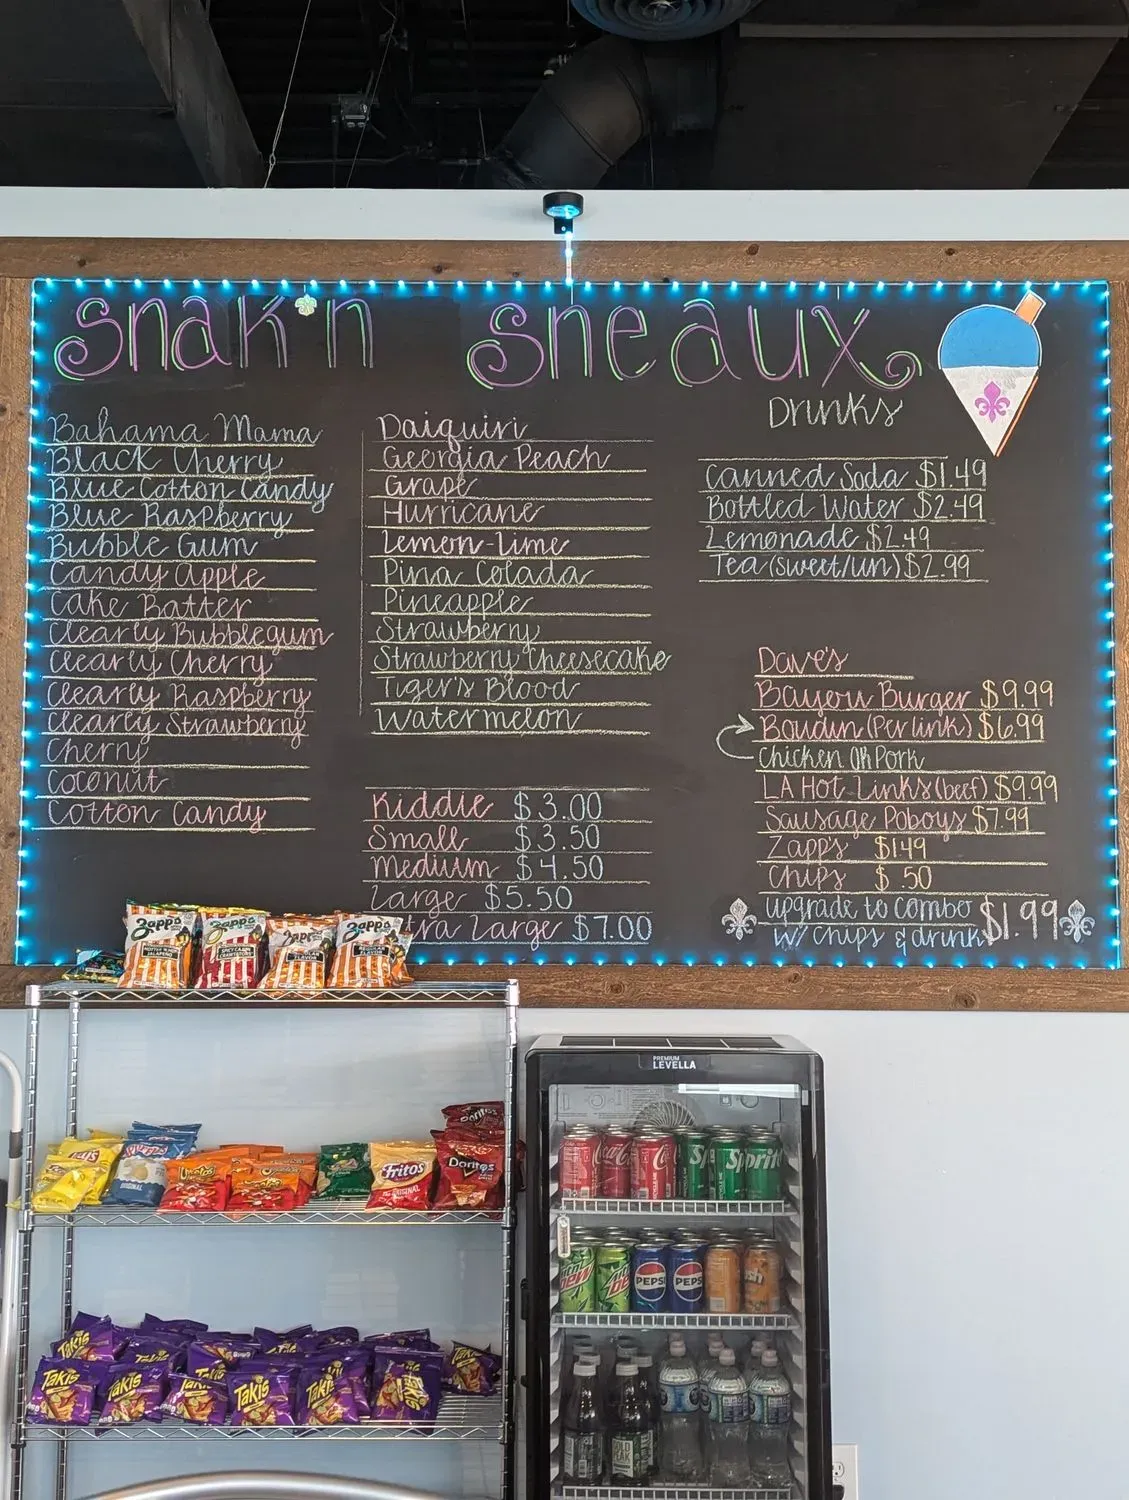 Snak'n Sneaux
Bahama Mama
Black Cherry
Blue Cotton Candy
Blue Raspberry
Bubble Gum
Candy Apple
Cake Batter
Clearly Bubblegum
Clearly Cherry
Clearly Raspberry
Clearly Strawberry
Cherry
Coconut
Cotton Candy
Daiquiri
Georgia Peach
Grape
Hurricane
Lemon-Lime
Pina Colada
Pineapple
Strawberry
Strawberry Cheesecake
Tiger's Blood
Watermelon
Kiddie $3.00
Small $3.50
Medium $4.50
Large $5.50
tra Large $7.00
Drinks
Canned Soda $1.49
Bottled Water $2.49
Lemonade $2.49
Tea (Sweet/un) $2.99
Dave's
Bayou Burger $9.99
Boudin (Per link) $6.99
Chicken OR Pork
LA Hot Links (beef) $9.99
Sausage Poboys $7.99
Zapp's $1.49
Chips $.50
upgrade to combo $1.99
w/ chips & drink
Zapp's
Zapp's
Zapp's
Zapp's
JALAPEÑO
SPICY CAJUN
CRAWTATORS
FLAVOR
FLAVOR
PREMIUM
LEVELLA
Lay's
Ruffles
ORIGINAL
Cheetos
Fritos
ORIGINAL
Doritos
Doritos
Coca-Cola
Sprite
PEPSI
PEPSI
Takis
Takis
Takis
Takis
Takis
Takis
Takis
Takis